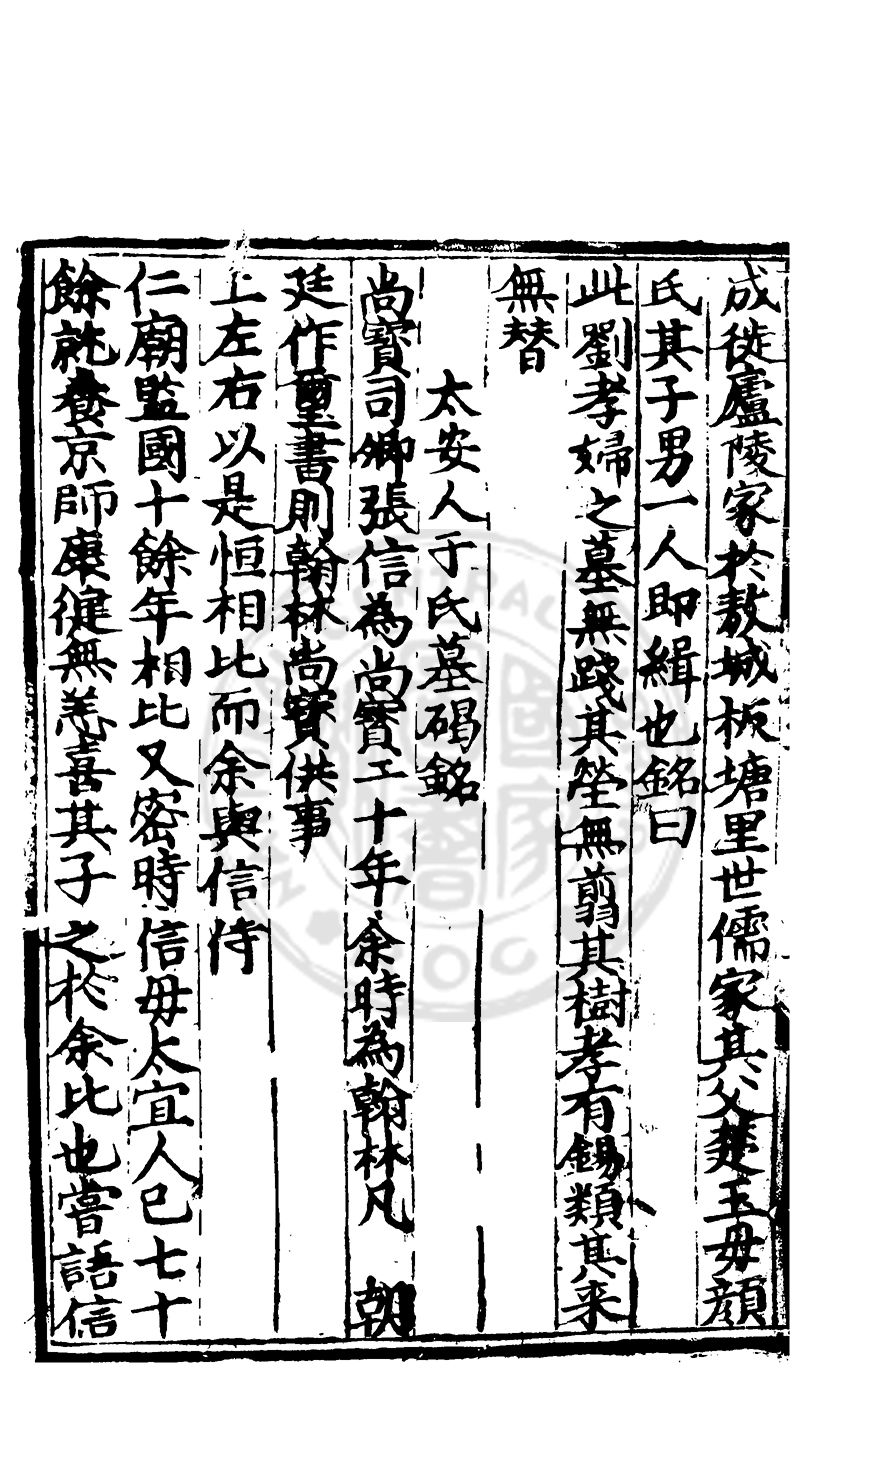 成徙廬陵家於敖城板塘里世儒家其父楚玉毋顔
氏其子男一人即緝也銘曰
此劉孝婦之墓無踐其塋無翦其樹孝有錫類其来
無替
太安人于氏墓碣銘
尚寳司卿張信為尚寳二十年余時為翰林凡 朝
廷作璽書則翰林尚寳供事
上左右以是恒相比而余與信侍
仁廟監國十餘年相比又密時信毋太宜人已七十
餘就養京師康健無恙喜其子之於余比也嘗語信